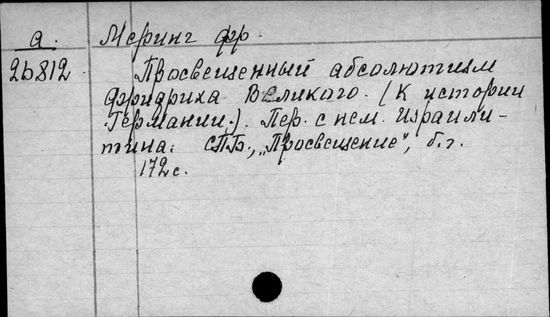 а. Меринг Фр.
2b812 Просвещенный абсолютизм
Фридриха Великого. (К истории
Германии.). Пер. с нем. Израили-
тина. СПБ., „Просвещение", б.г.
172 с.